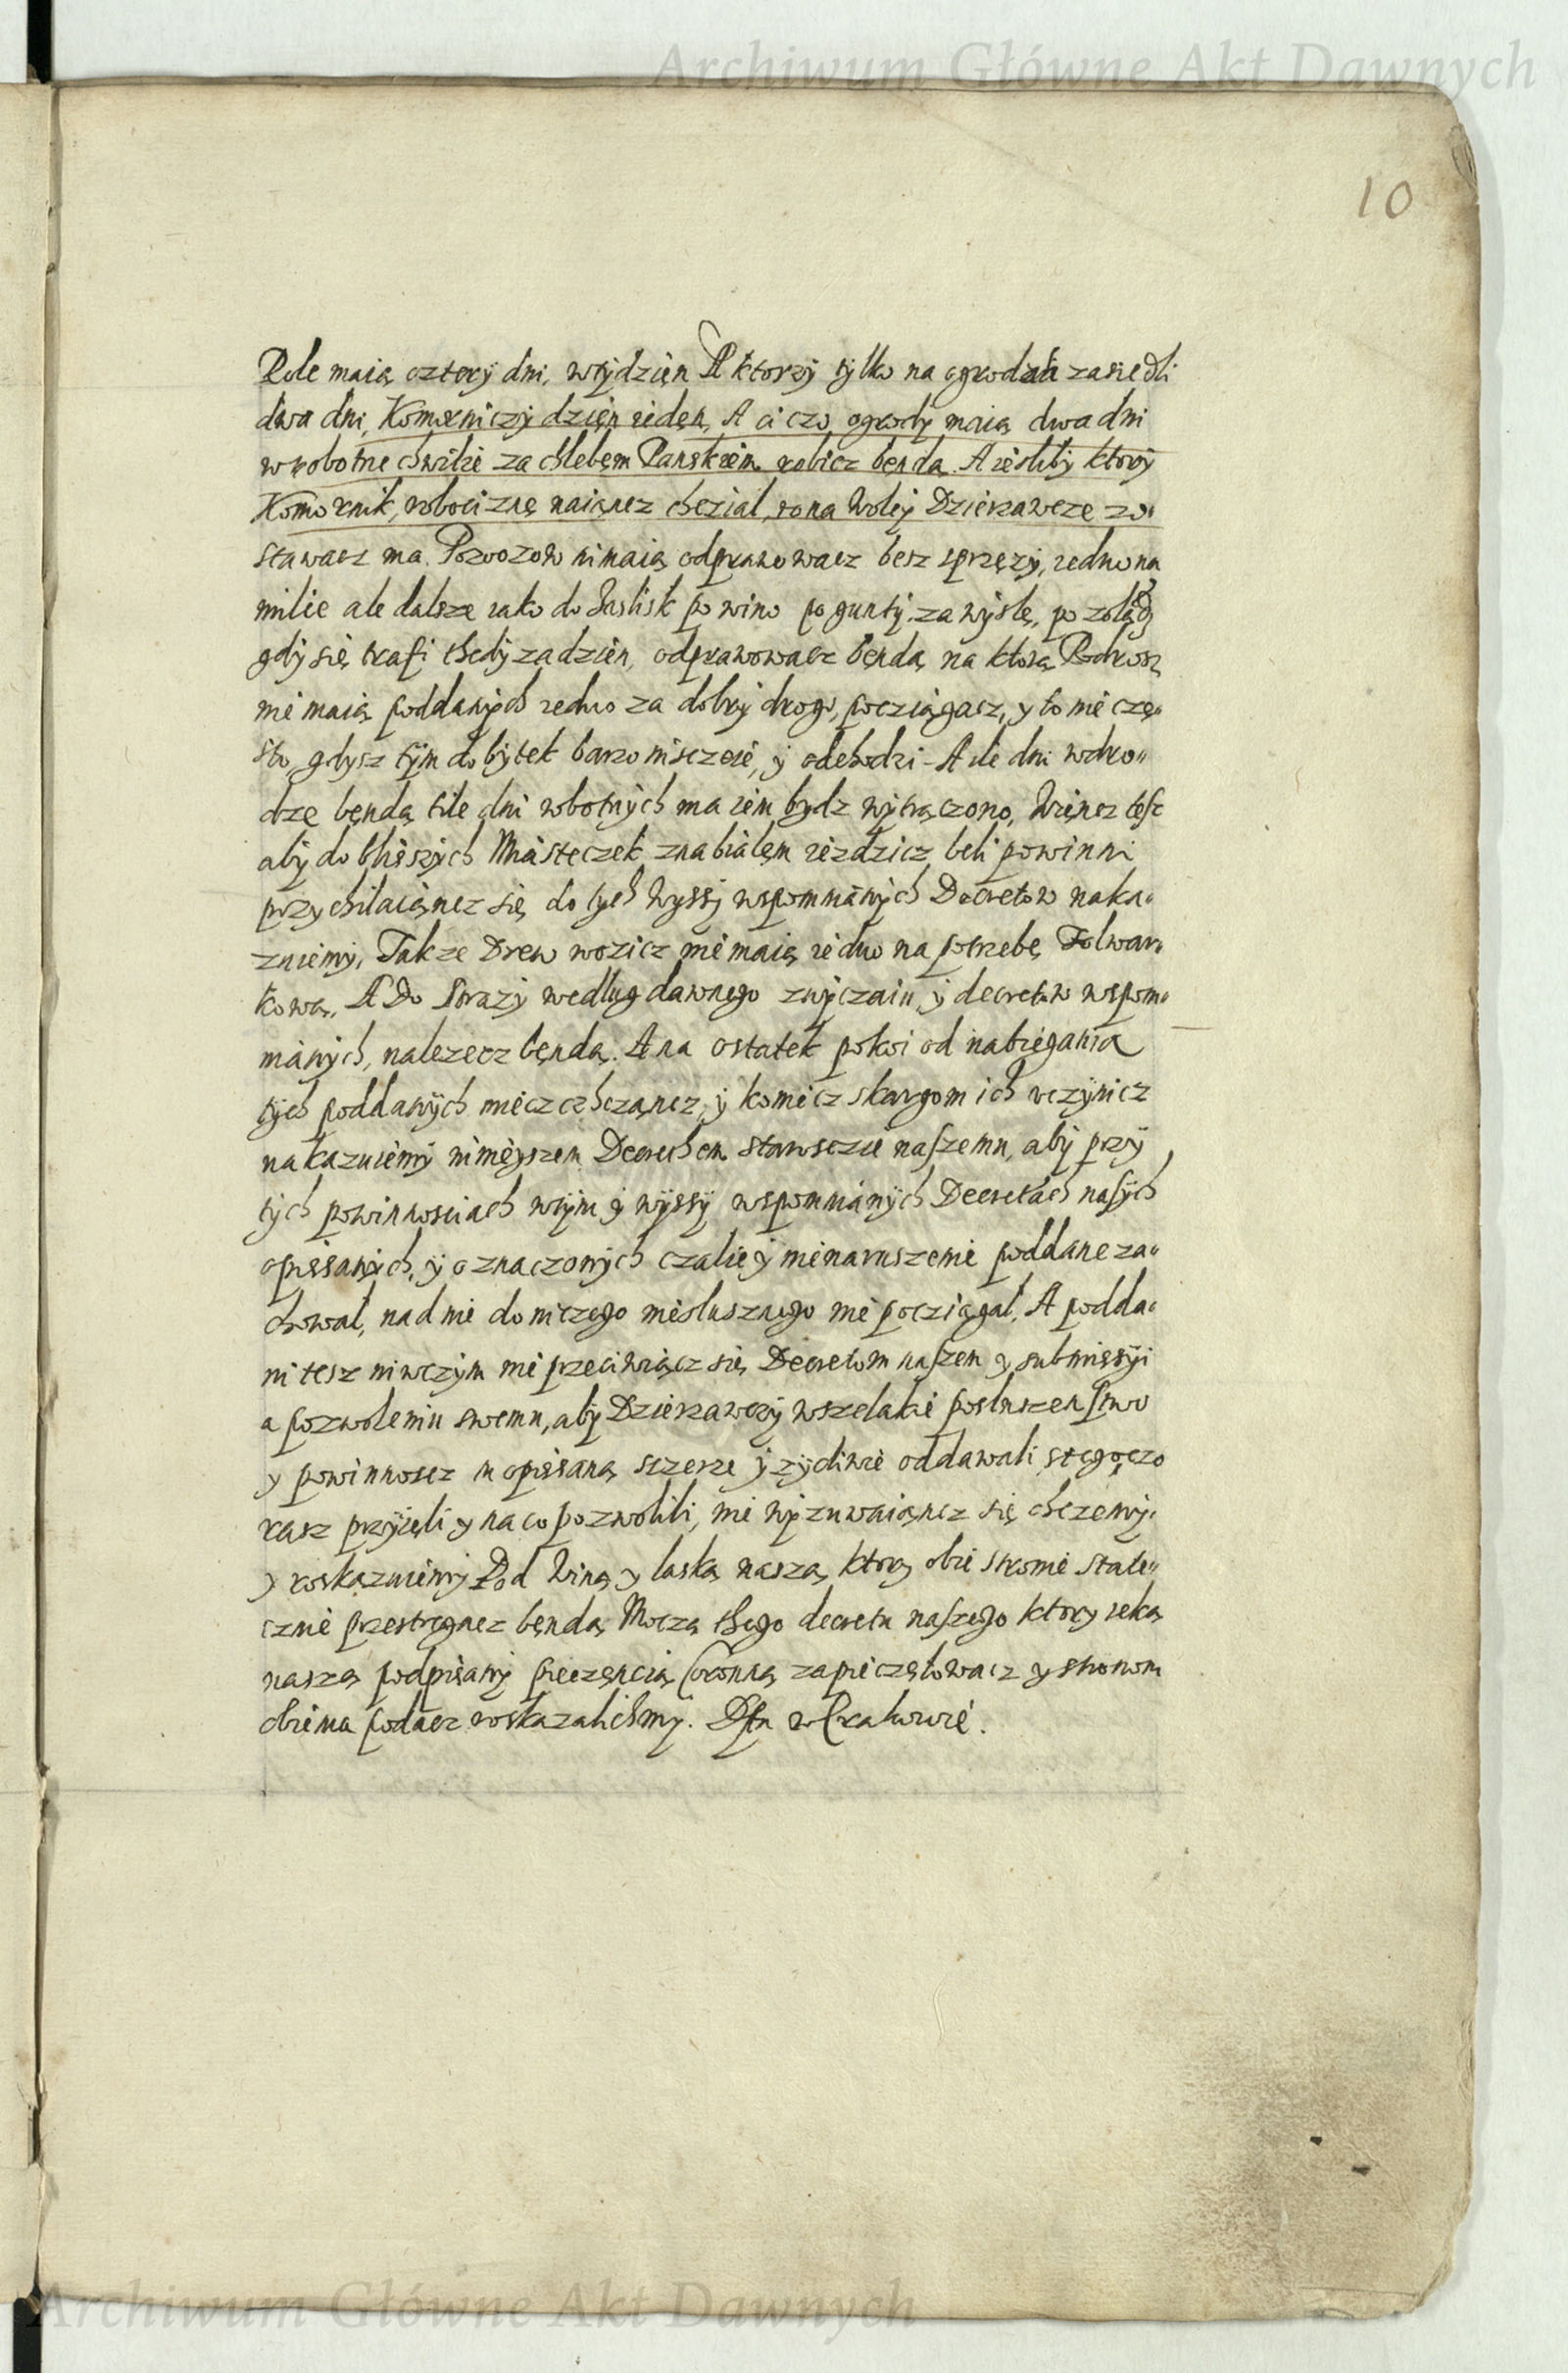 Archiwum Główne Akt Dawnych
10
Role maią cztery dni, wtydzien A ktorzy tylko na ogrodach zasiedli
dwa dni, Komorniczy dzięn ieden, A ci czo ogrody maią dwa dni
w robotne chwilie za chlebem Panskiem robicz będą. A iesliby ktory
Komornik, robociznę naiąncz chcział, to na Woley Dzierzawcze zo„
stawacz ma. Powozow ni maią odprawowacz besz sprzęzy, iedno na
milie ale dalsze iako do Iaslisk po wino po gunty za wyslę, po zolądz
gdy się trafi thedy za dzien, odprawowacz będą na ktorą Podrosz
nie maią poddanych iedno za dobrÿ drogi, poczięgacz, y to nie czę„
sto, gdysz tÿm dobÿtek barzo nisczeie, ÿ odchodzi – A ile dni wdro„
dze będą tile dni robotnÿch ma iem bydz wÿtrączono, Więncz tesz
abÿ do bliszÿch Miasteczek znabiałem iezdzicz beli powinni
przychilaiąncz się do tych Wyssy wspomnianÿch Decretow naka„
zuiemÿ, Takze Drew wozicz nie maią iedno na potrzebę Folwar„
kową. A Do Strazÿ według dawnego zwÿczaiu ÿ decretow wspom„
nianÿch, nalezecz będą. A na ostatek pokoi od nabiegania
tÿch poddanÿch miecz chcząncz, ÿ koniecz skargom ich vczÿnicz
nakazuiemÿ ninieÿszem Decrethem Starosczie naszemu, abÿ przÿ
tÿch powinnosciach wtÿm ÿ wÿssÿ wspomnianÿch Decretach naszÿch
opissanÿch, ÿ oznaczonÿch czalie ÿ nienaruszenie poddane za„
chował, nad nie do niczego niesłusznego nie poczięgał, A podda„
ni tesz ni wczÿm nie przeciwiącz się Decretom naszem y submissÿi
a pozwoleniu swemu, abÿ Dzierzawczÿ wszelakie posłuszenstwo
y powinnoscz opisaną sczerze ÿ zÿcliwie oddawali, s tego czo
rasz przÿięli y na co pozwolili, nie wÿzuwaiąncz się chczemÿ,
y roskazuiemÿ Pod Winą y łaską naszą, ktorą obie stronie state„
cznie przestrzegacz będą Moczą thego decretu naszego ktorÿ ręką
naszą podpisanÿ pieczęncią Coronną zapieczętowacz y stronom
obiema podacz roskazalichmÿ. Dtn w Crakowie.
Archiwum Główne Akt Dawnych